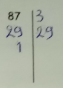 87 3
29 29
1